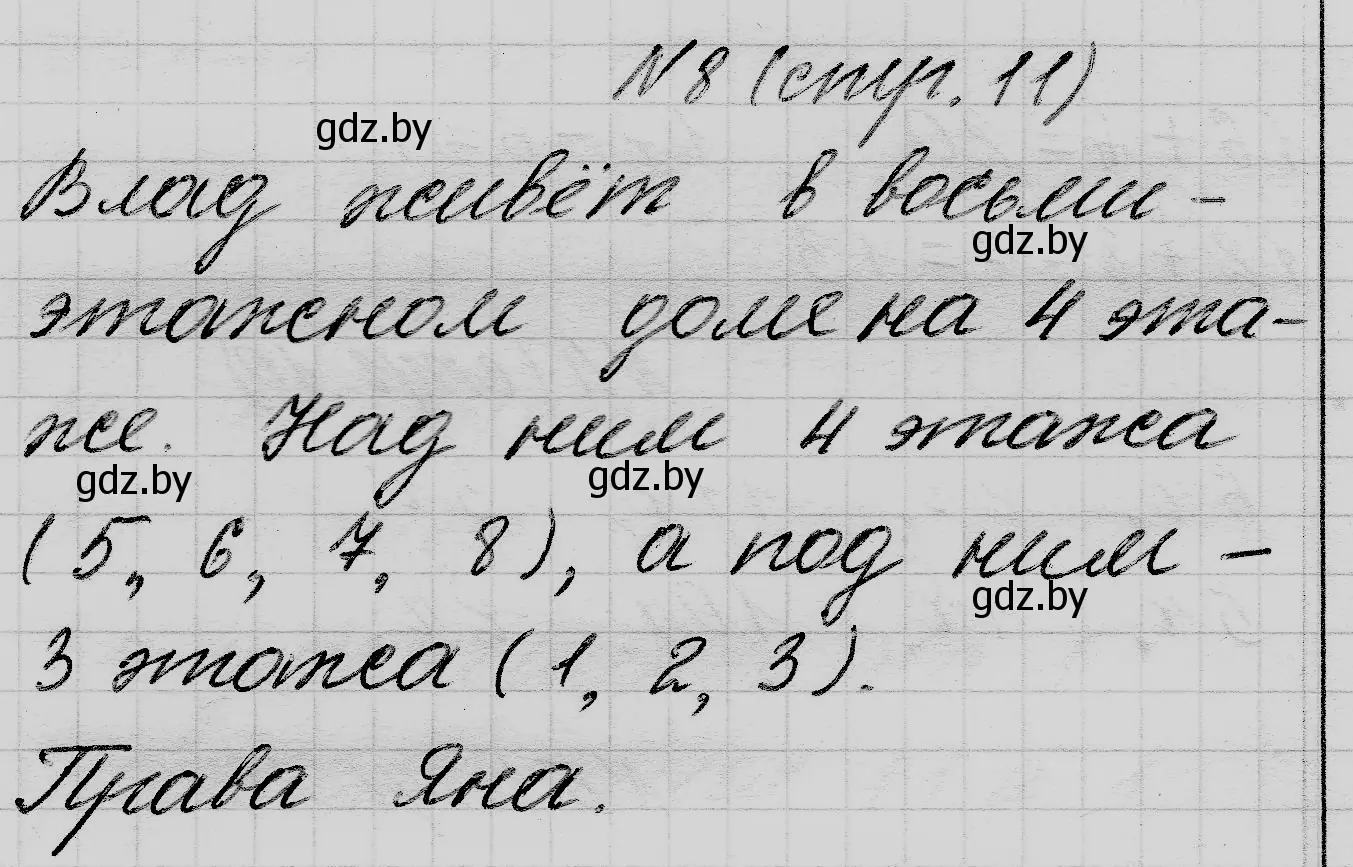 №8 (стр. 11)
gdz.by
Влад живёт в восьми-
gdz.by
этажном доме на 4 эта-
же. Над ним 4 этажа
gdz.by gdz.by
(5, 6, 7, 8), а под ним -
gdz.by
3 этажа (1, 2, 3).
Права Яна.